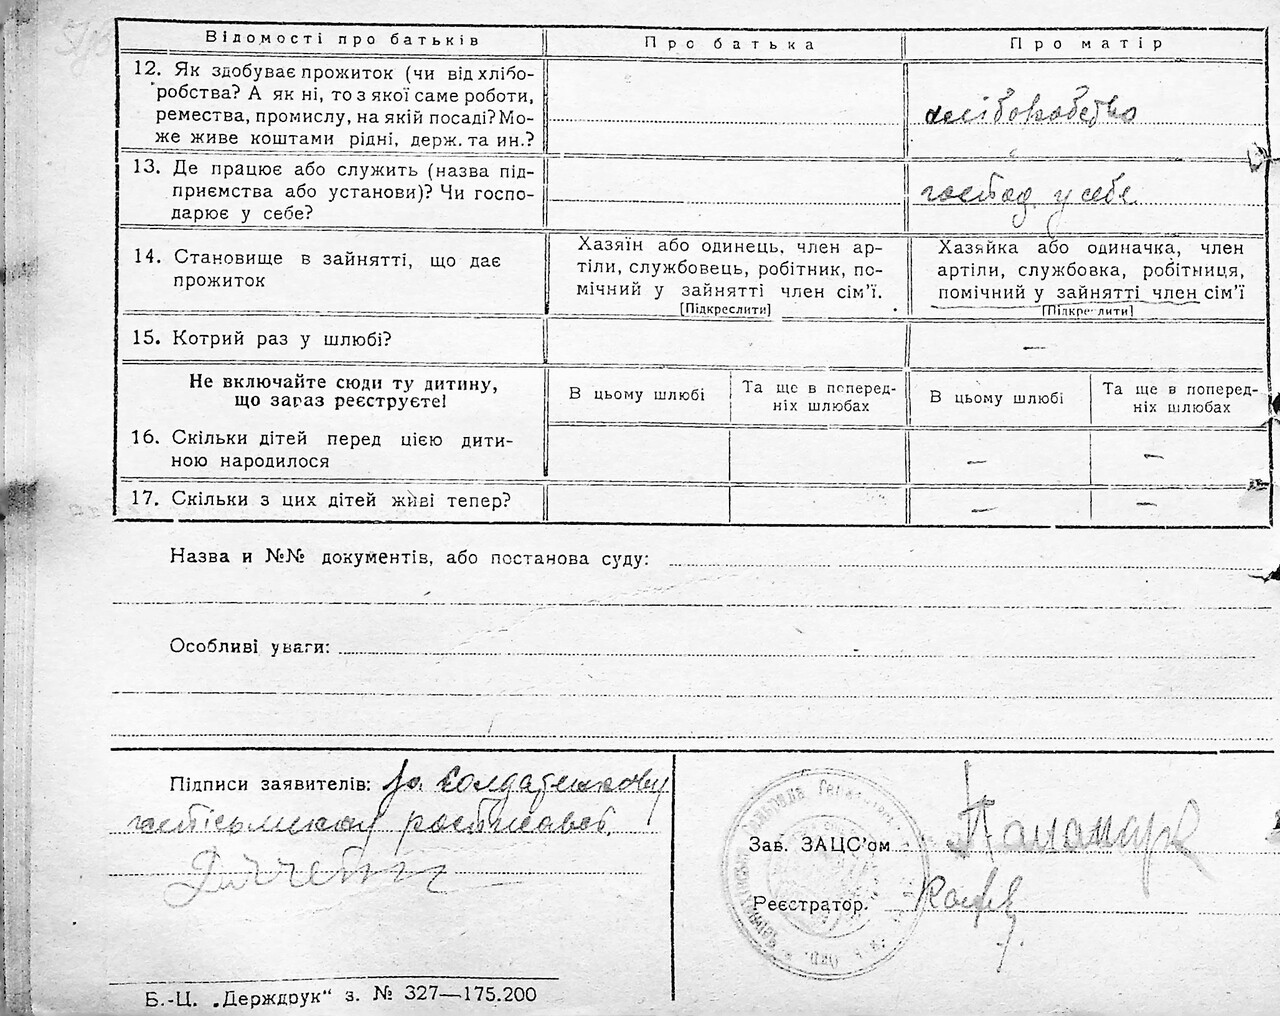 Відомості про батьків
Про батька
Про матір
12. Як здобуває прожиток (чи від хлібо-
робства? А як ні, то з якої саме роботи,
ремества, промислу, на якій посаді? Мо-
же живе коштами рідні, держ. та ин.?
хліборобство
13. Де працює або служить (назва під-
приємства або установи)? Чи госпо-
дарює у себе?
господ. у себе
14. Становище в зайнятті, що дає
прожиток
Хазяїн або одинець, член ар-
тіли, службовець, робітник, по-
мічний у зайнятті член сім'ї.
[Підкреслити]
Хазяйка або одиначка, член
артіли, службовка, робітниця,
помічний у зайнятті член сім'ї
[Підкреслити]
15. Котрий раз у шлюбі?
—
Не включайте сюди ту дитину,
що зараз реєструєте!
В цьому шлюбі
Та ще в поперед-
ніх шлюбах
В цьому шлюбі
Та ще в поперед-
ніх шлюбах
16. Скільки дітей перед цією дити-
ною народилося
— —
17. Скільки з цих дітей живі тепер?
— —
Назва и №№ документів, або постанова суду:
Особливі уваги:
Підписи заявителів: за
Зав. ЗАЦС'ом
Реєстратор.
Б.-Ц. „Держдрук" з. № 327—175.200